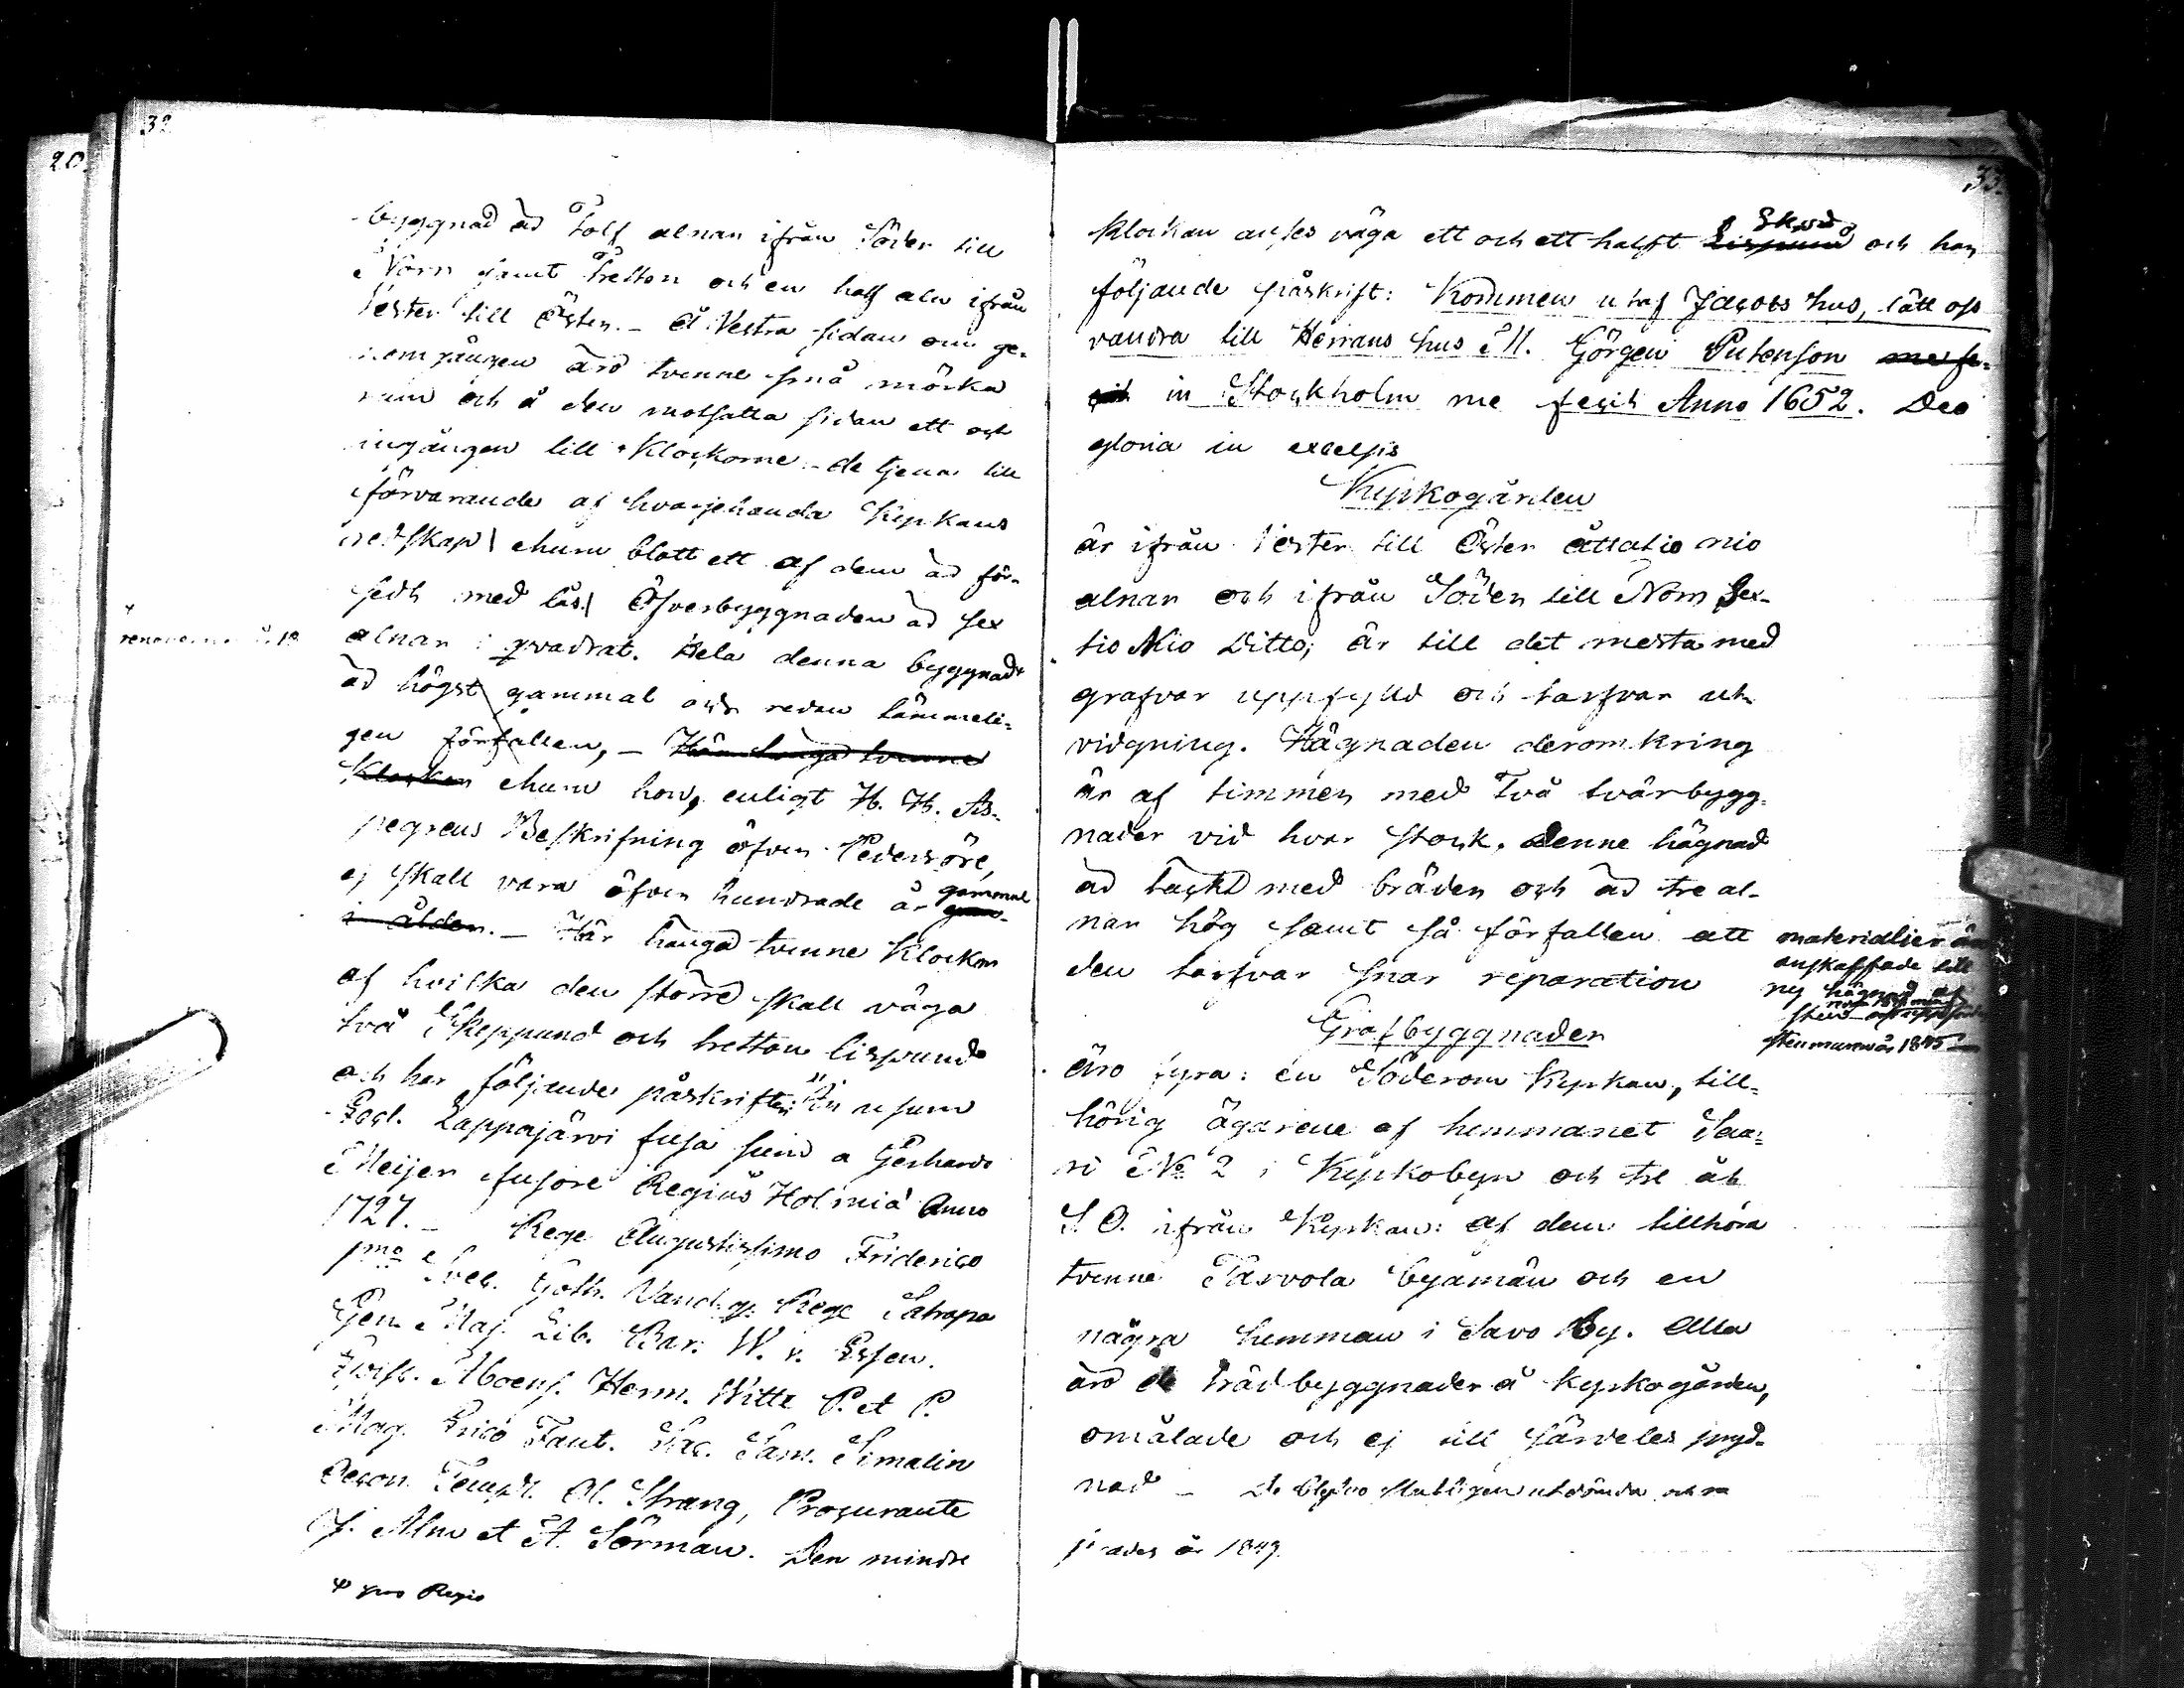 32
20.
byggnad är Tolf alnar ifrån Söder till
Norr samt Tretton och en half aln ifrån
Vester till Öster. – Å Vestra sidan om ge-
nomgången äro tvenne små mörka
rum och å den motsatta sidan ett och
ingången till Klockorne – de tjena till
förvarande af hvarjehanda Kyrkans
redskap \ ehuru blott ett af dem är för-
sedt med lås.\ Öfverbyggnaden är sex
alnar i qvadrat. Hela denna byggnad
är högst gammal och redan tämmeli-
gen förfallen, – Här hänga tvenne
Klockor ehuru hon, enligt H. H. As-
pegrens Beskrifning öfver Pedersöre,
ej skall vara öfver hundrade år gammal
i ålder. – Här hänga tvenne Klockor
af hvilka den större skall väga
två Skeppund och tretton lispund
och har följande påskrifter: "In usum
Eccl. Lappajärvi fusa sum a Gerhard
Meijer fusore Regius Holmiä Anno
1727. – Rege Augustissimo Friderico
pmo Svec. Goth. Vand. q. Rege Satrapa
Gen. Maj. Lib. Bar. W. v. Essen.
Episc. Aboens. Herm. Witte P. et P.
Mag. Erico Faut. Sac. Sam. Simalin
Oecon. Templ. Ol. Strang, Procurante
J. Alm et A. Sörman. Den mindre
pro Regio
33.
Klockan anses väga ett och ett halft Lispund Skpd och har
följande påskrift: Kommen utaf Jacobs hus, lått oss
vandra till Herrans hus M. Görgen Putensen me fe-
cit in Stockholm me fecit Anno 1652. Deo
gloria in excelsis
Kyrkogården
är ifrån Vester till Öster åttatio nio
alnar och ifrån Söder till Norr Sex-
tio Nio Ditto; är till det mesta med
grafvar uppfylld och tarfvar ut-
vidgning. Hägnaden deromkring
är af timmer med Två tvärbygg-
nader vid hvar stock. Denne hägnad
är täckt med bräder och är tre al-
nar hög samt så förfallen att
den tarfvar snar reparation
materialier är
anskaffade till
ny hägnad af
sten
stenmur år 1845
Grafbyggnader
äro fyra: en Söderom Kyrkan, till-
hörig ägarene af hemmanet Saa-
ri No 2 i Kyrkobyn och tre åt
S.O. ifrån Kyrkan: af dem tillhöra
tvenne Tarvola byamän och en
några hemman i Savo By. Alla
äro de träd byggnader å kyrkogården,
omålade och ej till särdeles pryd-
nad – De blefvo
år 1849.